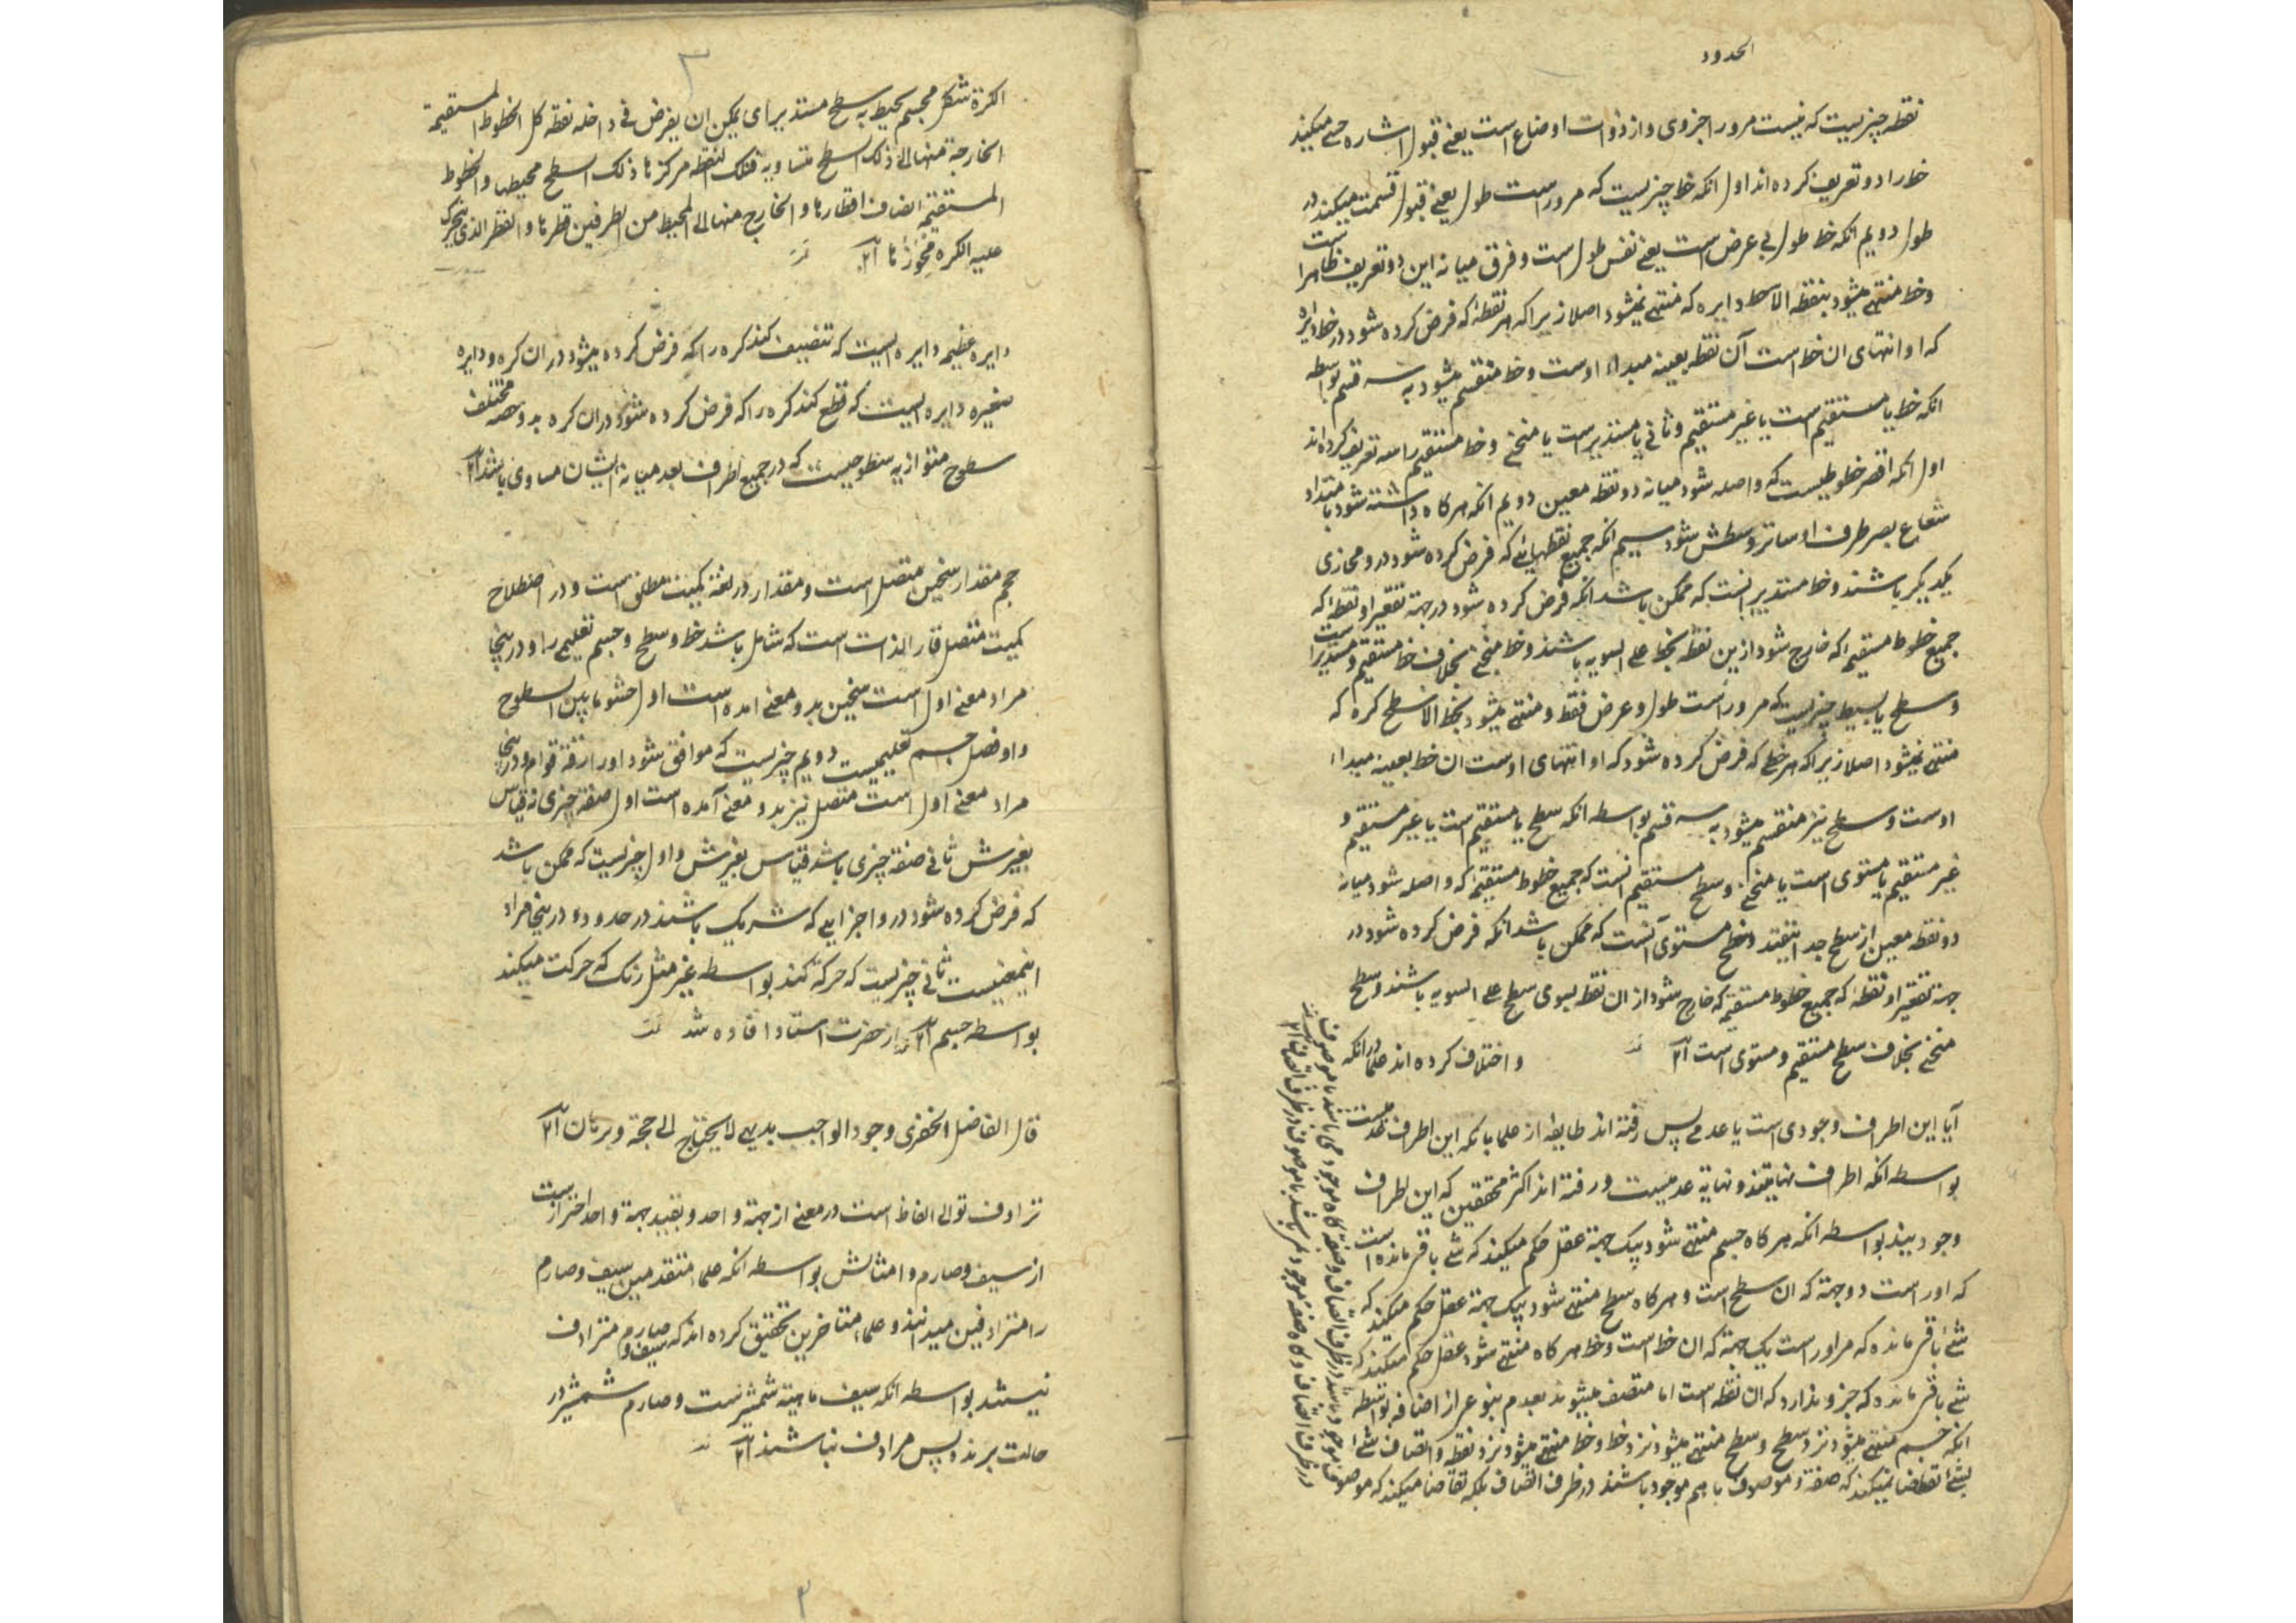 الحدود
نقطه چیزیست که نیست مر ورا جزوی و از ذوات اوضاع است یعنی قبول اشاره حسی میکند
خط را دو تعریف کرده اند اول انکه خط چیزیست که مر وراست طول یعنی قبول قسمت میکند در
طول دویم انکه خط طول بی عرض است یعنی نفس طول است و فرق میانه این دو تعریف ظاهراست
و خط منتهی میشود بنقطه الا خط دایره که منتهی نمیشود اصلا زیرا که هر نقطه که فرض کرده شود در خط دایره
که او انتهای ان خط است آن نقطه بعینه مبداء اوست و خط منقسم میشود به سه قسم بواسطه
انکه خط یا مستقیم است یا غیر مستقیم و ثانی یا مستدیر است یا منحنی و خط مستقیم را سه تعریف کرده اند
اول انکه اقصر خطوطیست که واصله شود میانه دو نقطه معین دویم انکه هر کاه داشته شود بامتداد
شعاع بصر طرف او ساتر وسطش شود سیم انکه جمیع نقطهائی که فرض کرده شود در و محازی
یکدیگر باشند و خط مستدیر انست که ممکن باشد انکه فرض کرده شود در جهة تقعیر او نقطه که
جمیع خطوط مستقیمه که خارج شود ازین نقطه بخط علی السویه باشند و خط منحنی بخلاف خط مستقیم و مستدیر است
و سطح یا بسیط چیزیست که مر وراست طول و عرض فقط و منتهی میشود بخط الا سطح کره که
منتهی نمیشود اصلا زیرا که هر خطی که فرض کرده شود که او انتهای اوست ان خط بعینه مبداء
اوست و سطح نیز منقسم میشود به سه قسم بواسطه انکه سطح یا مستقیم است یا غیر مستقیم و
غیر مستقیم یا مستوی است یا منحنی و سطح مستقیم انست که جمیع خطوط مستقیمه که واصله شود میانه
دو نقطه معین از سطح جدا نیفتد و سطح مستوی آنست که ممکن باشد انکه فرض کرده شود در
جهة تقعیر او نقطه که جمیع خطوط مستقیمه که خارج شود از ان نقطه بسوی سطح علی السویه باشند و سطح
منحنی بخلاف سطح مستقیم و مستوی است
و اختلاف کرده اند علما در انکه
آیا این اطراف وجودی است یا عدمی پس رفته اند طایفه از علما بانکه این اطراف عدمیست
بواسطه انکه اطراف نهایتند و نهایة عدمیست و رفته اند اکثر محققین که این اطراف
وجودیند بواسطه انکه هر کاه جسم منتهی شود بیک جهة عقل حکم میکند که شی باقی مانده است
که اوراست دو جهة که ان سطح است و هر کاه سطح منتهی شود بیک جهة عقل حکم میکند که
شئ باقی مانده که مر اوراست یک جهة که ان خط است و خط هر کاه منتهی شود عقل حکم میکند که
شی باقی مانده که جزو ندارد که ان نقطه است اما متصف میشوند بعدم بنوعی از اضافه بواسطه
انکه جسم منتهی میشود نزد سطح و سطح منتهی میشود نزد خط و خط منتهی میشود نزد نقطه و اتصاف شئ
بشئ تقاضا نمیکند که صفة و موصوف با هم موجود باشند در ظرف اتصاف بلکه تقاضا میکند که موصوف
موجود باشد در ظرف اتصاف و صفة کاه موجود می باشد با موصوف
در ظرف اتصاف و کاه صفة موجود نمی باشد با موصوف در ظرف اتصاف
الکرة شکل مجسم یحیط به سطح مستدیر ای یمکن ان یفرض فی داخله نقطه کل الخطوط المستقیمة
الخارجة منها الی ذلک السطح متساویه فتلک النقطه مرکزها ذلک السطح محیطها و الخطوط
المستقیمه انصاف اقطارها و الخارج منها الی المحیط من الطرفین قطرها و القطر الذی یتحرک
علیه الکره محورها
دایره عظیمه دایره ایست که تنصیف کند کره را که فرض کرده میشود در ان کره و دایره
صغیره دایره ایست که قطع کند کره را که فرض کرده شود در ان کره به دو حصه مختلف
سطوح متوازیه سطوحیست که در جمیع اطراف بعد میانه ایشان مساوی باشد
حجم مقدار سخین متصل است و مقدار در لغة کمیت مطلق است و در اصطلاح
کمیت متصل قار الذات است که شامل باشد خط و سطح و جسم تعلیمی را و در ینجا
مراد معنی اول است سخین بدو معنی امده است اول حشو مابین السطوح
و او فصل جسم تعلیمیست دویم چیزیست که موافق شود او را رقة قوام و در ینجا
مراد معنی اول است متصل نیز بدو معنی آمده است اول صفة چیزی نه قیاس
بغیرش ثانی صفة چیزی باشد قیاس بغیرش و اول چیزیست که ممکن باشد
که فرض کرده شود در و اجزایی که شریک باشند در حدود و در ینجا مراد
اینمعنیست ثانی چیزیست که حرکة کند بواسطه غیر مثل رنک که حرکت میکند
بواسطه جسم از حضرت استاد افاده شد
قال الفاضل الخفری وجود الواجب بدیهی لا یحتاج الی حجة و برهان
ترادف توالی الفاظ است در معنی از جهة واحد و بقید جهة واحد احتراز است
از سیف و صارم و امثالش بواسطه انکه علماء متقدمین سیف و صارم
را مترادفین میدانند و علماء متاخرین تحقیق کرده اند که سیف و صارم مترادف
نیستند بواسطه انکه سیف ماهیة شمشیرست و صارم شمشیر در
حالت برنده پس مرادف نباشند